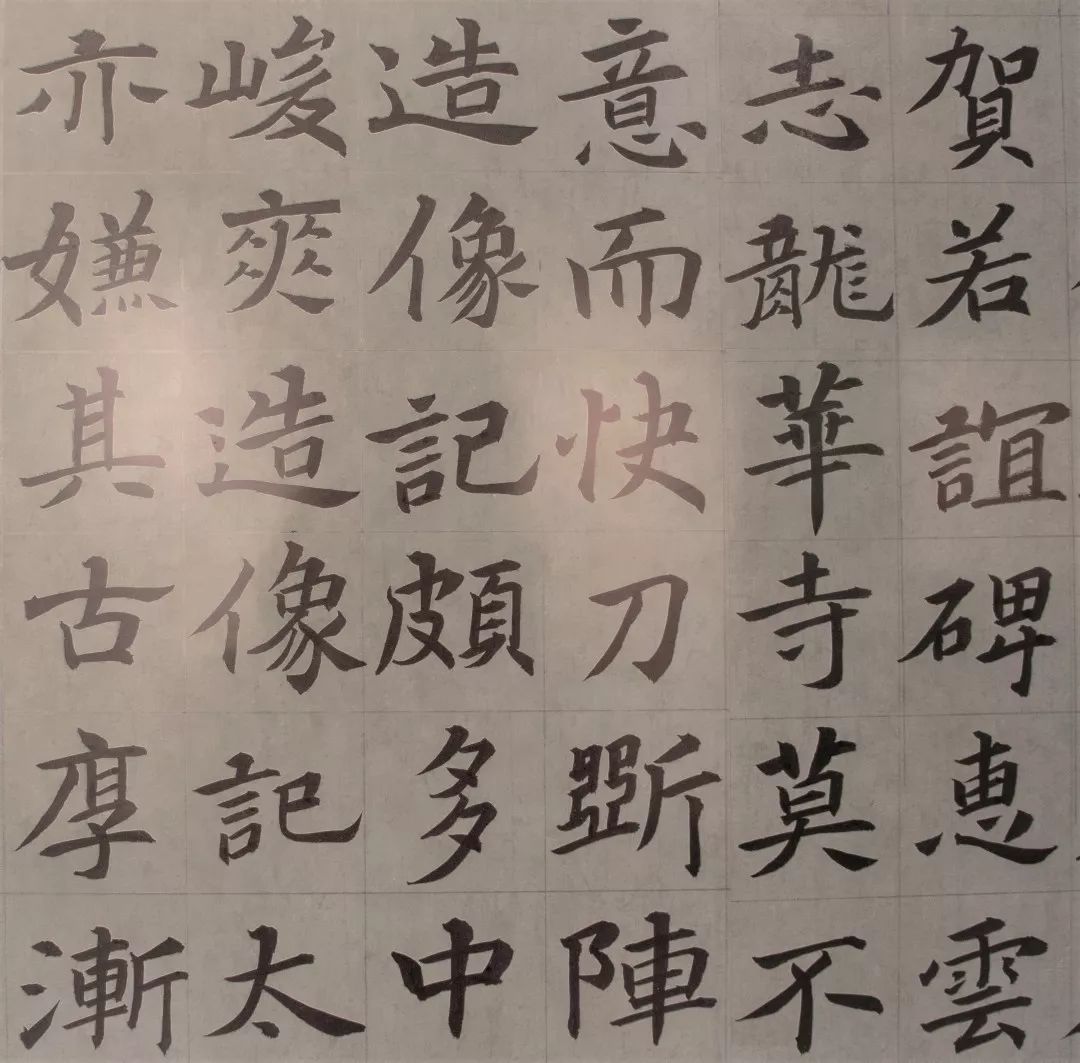 賀若誼碑恵雲
志龍華寺莫不
意而快刀斵陣
造像記頗多中
峻爽造像記太
亦嫌其古厚漸